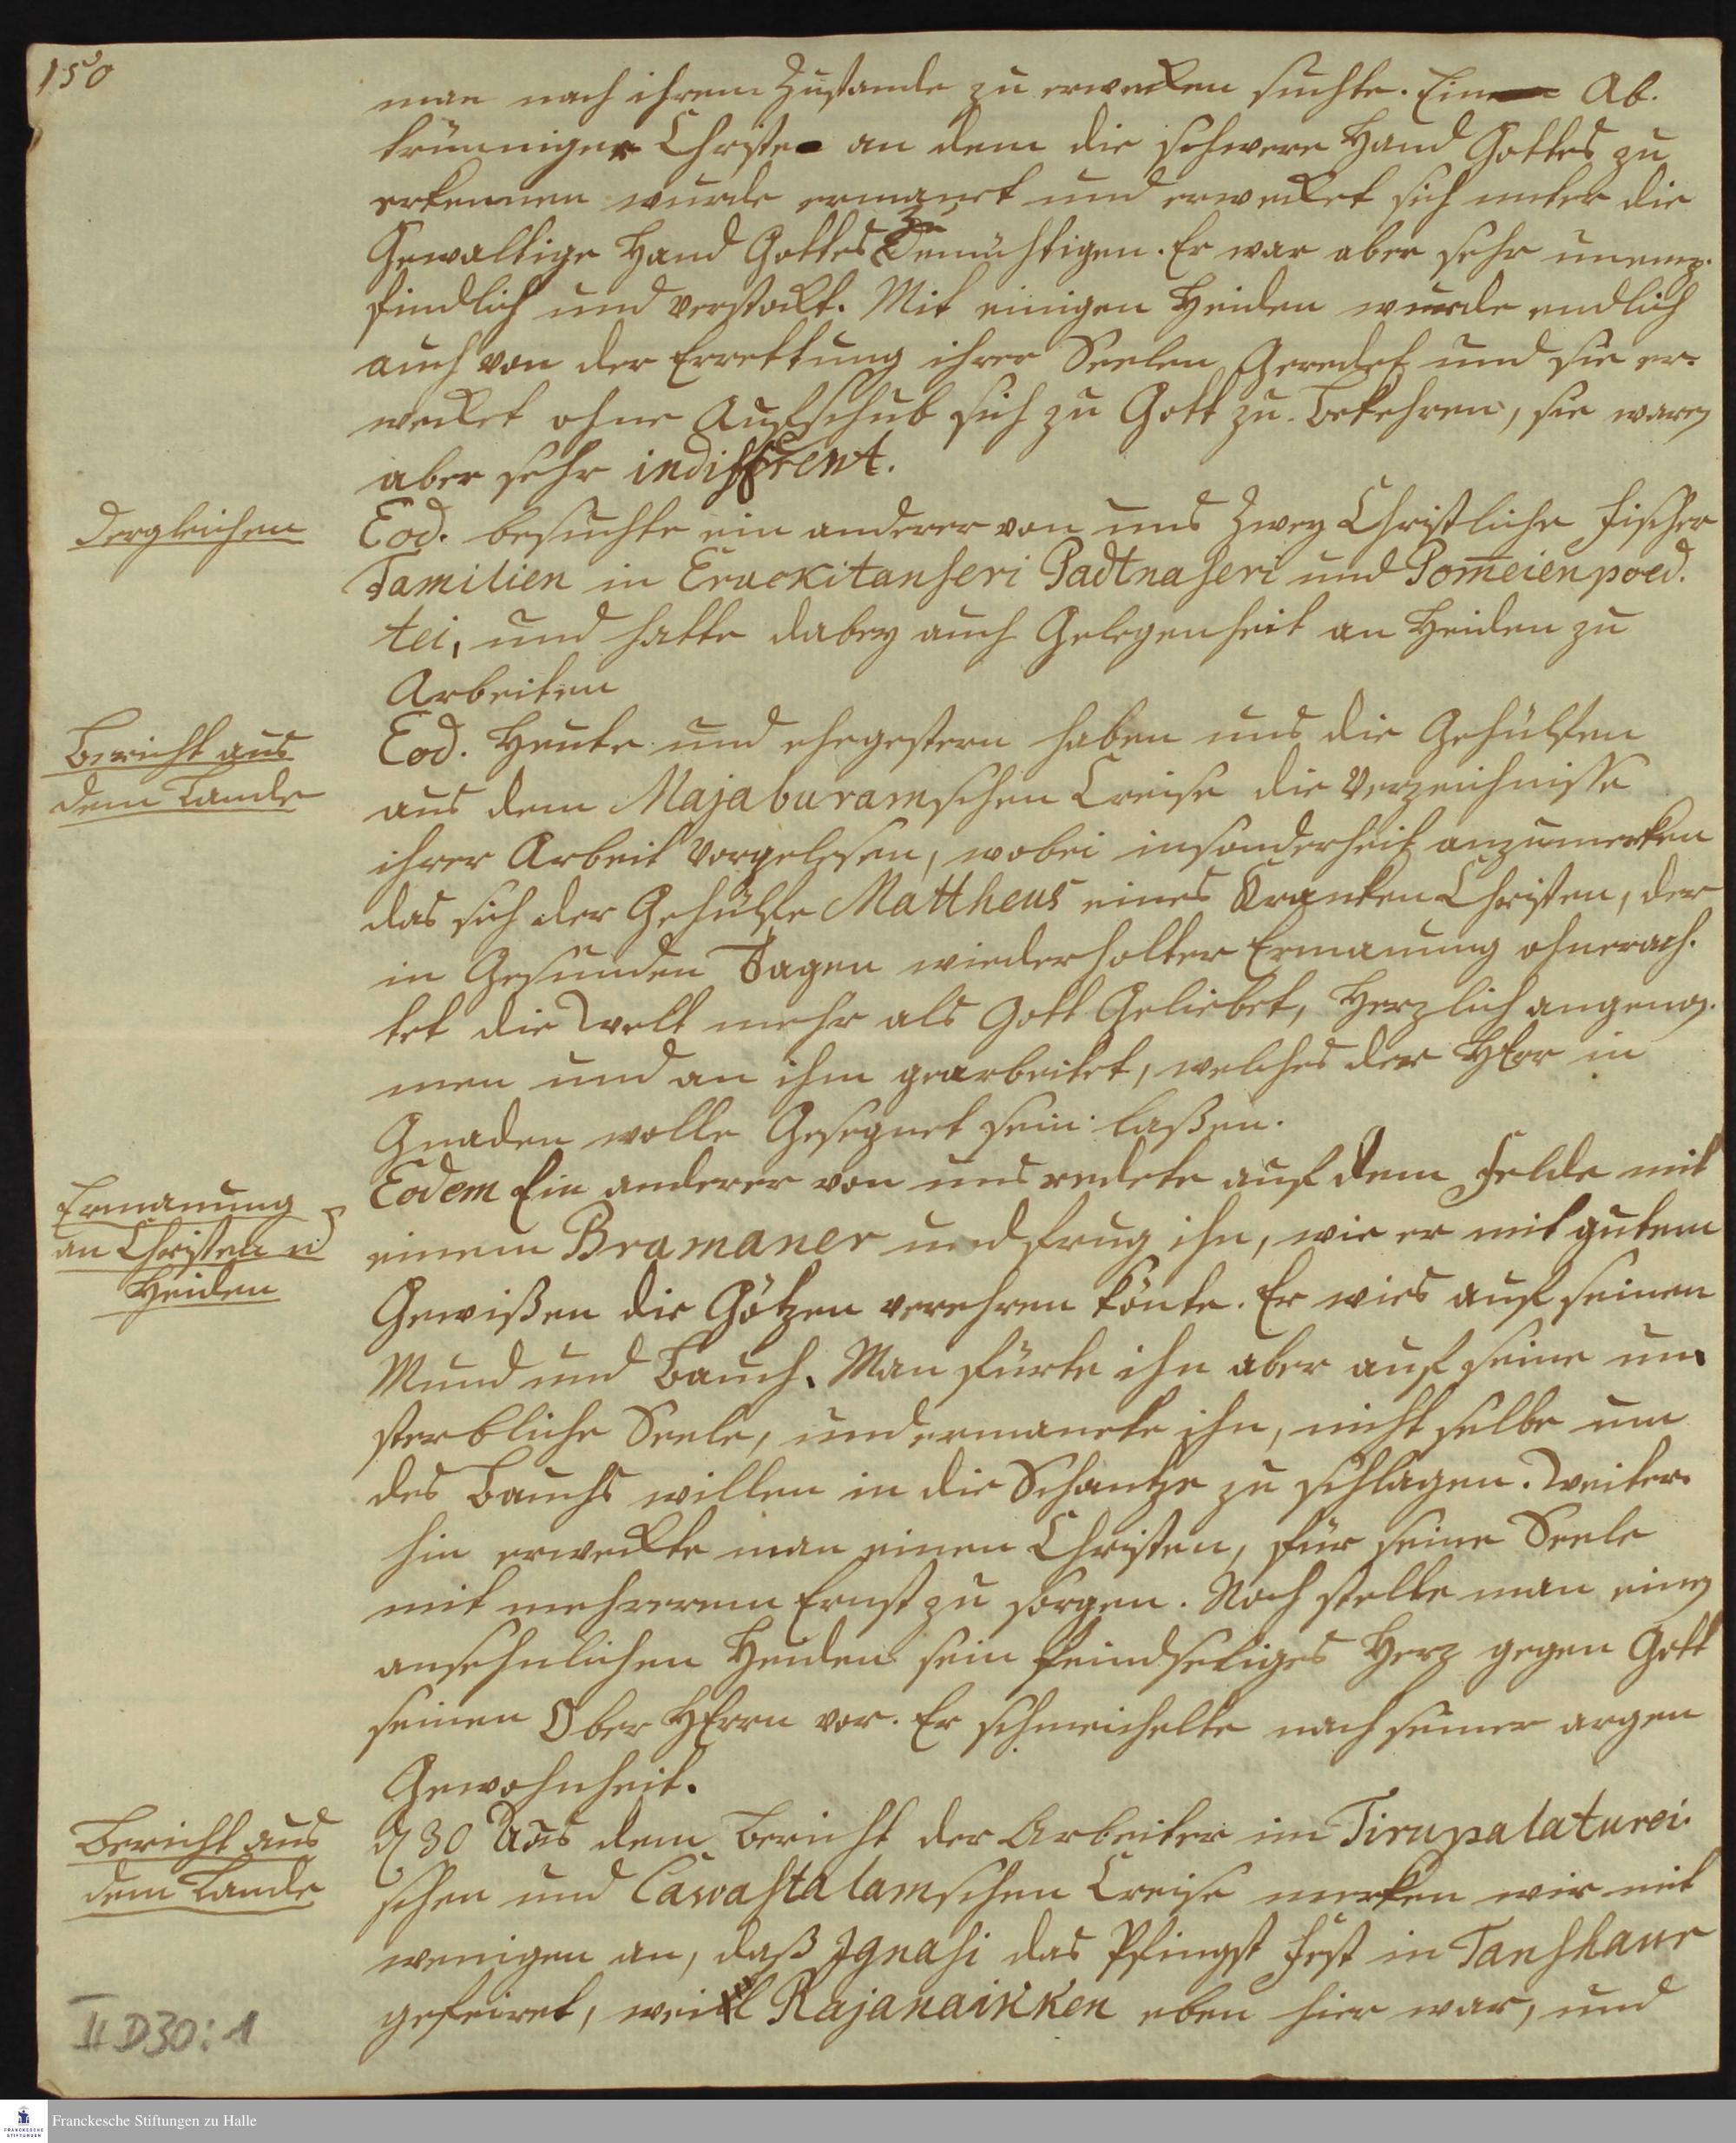 150
man nach ihrem Zustande zu erwecken suchte. Ein Ab-
trünniger Christe an dem die schwere Hand Gottes zu
erkennen wurde ermanet und erwecket sich unter die
Gewaltige Hand Gottes zu Demüthigen. Er war aber sehr unemp-
findlich und verstockt. Mit einigen Heiden wurde endlich
auch von der Errettung ihrer Seelen Geredet und sie er-
wecket ohne Aufschub sich zu Gott zu bekehren, sie waren
aber sehr indifferent.
Dergleichen
Eod. besuchte ein anderer von uns Zwey Christliche Fischer
Familien in Eruckitanseri Padtnaseri und Pom̄eienpoed-
tei, und hatte dabey auch Gelegenheit an Heiden zu
Arbeiten
Bericht aus
dem Lande
Eod. Heute und ehegestern haben uns die Gehülfen
aus dem Majaburamschen Creise die Verzeichnisse
ihrer Arbeit vorgelesen, wobei insonderheit anzumerken
das sich der Gehülfe Mattheus eines Kranken Christen, der
in Gesunden Tagen wiederholter Ermanung ohnerach-
tet die Welt mehr als Gott Geliebet, Herzlich angenom-
men und an ihm gearbeitet, welches der HErr in
Gnaden wolle Gesegnet sein laßen.
Ermanung
an Christen u
Heiden
Eodem Ein anderer von uns redete auf dem Felde mit
einem Bramaner und frug ihn, wie er mit gutem
Gewißen die Götzen verehren könte. Er wies auf seinen
Mund und Bauch. Man fürte ihn aber auf seine un-
sterbliche Seele, und ermanete ihn, nicht selbe um
des Bauchs willen in die Schantze zu schlagen. Weiter-
hin erweckte man einen Christen, für seine Seele
mit mehrerem Ernst zu sorgen. Noch stelte man einem
ansehnlichen Heiden sein feindseliges Herz gegen Gott
seinen Ober HErrn vor. Er schmeichelte nach seiner argen
Gewohnheit.
Bericht aus
dem Lande
d 30 Aus dem Bericht der Arbeiter im Tirupalaturei-
schen und Cawastalamschen Creise merken wir mit
wenigen an, daß Ignasi das Pfingst Fest in Tanshaur
gefeiret, weil Rajanaikken eben hier war, und
II D30:1
Franckesche Stiftungen zu Halle
FRANCKESCHE STIFTUNGEN